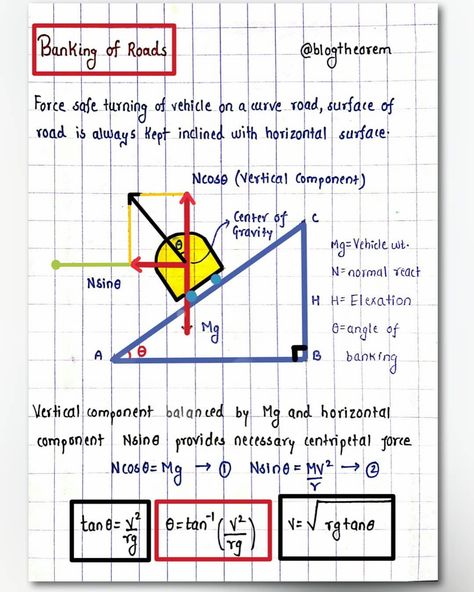 Banking of Roads
@blogtheorem
Force safe turning of vehicle on a curve road, surface of
road is always kept inclined with horizontal surface.
Ncosθ (Vertical Component)
Center of
Gravity
θ
Nsinθ
Mg
A
θ
B
C
H
Mg=Vehicle wt.
N=normal react
H=Elexation
θ=angle of
banking
Vertical component balanced by Mg and horizontal
component Nsinθ provides necessary centripetal force
Ncosθ=Mg → ① Nsinθ=MV²/r → ②
tanθ=V²/rg
θ=tan⁻¹(V²/rg)
V=√rgtanθ